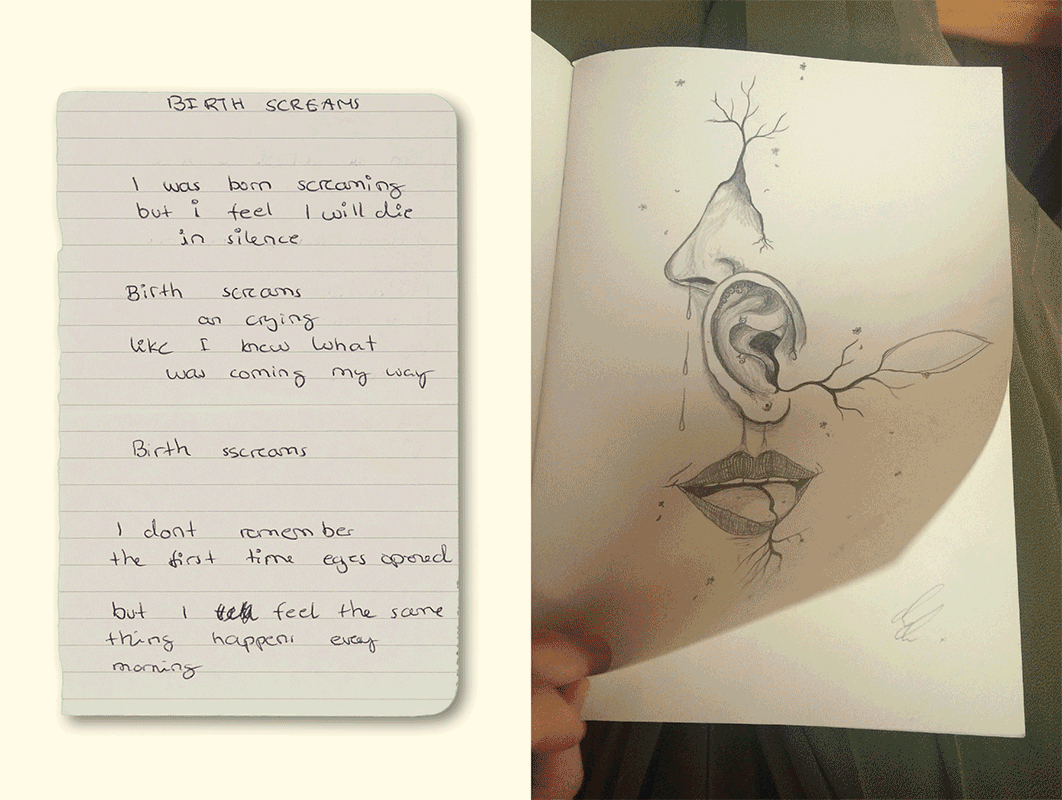 BIRTH SCREAMS
I was born screaming
but i feel I will die
in silence
Birth screams
an crying
like I knew what
was coming my way
Birth sscreams
I dont remember
the first time eyes opened
but I feel the same
thing happens every
morning